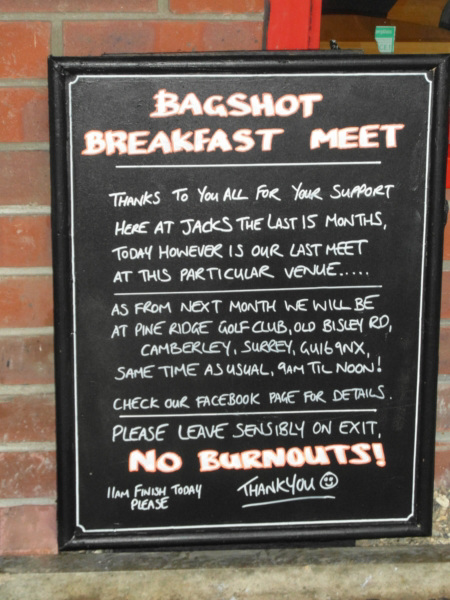 BAGSHOT
BREAKFAST MEET
THANKS TO YOU ALL FOR YOUR SUPPORT
HERE AT JACKS THE LAST 15 MONTHS,
TODAY HOWEVER IS OUR LAST MEET
AT THIS PARTICULAR VENUE.....
AS FROM NEXT MONTH WE WILL BE
AT PINE RIDGE GOLF CLUB, OLD BISLEY RD,
CAMBERLEY, SURREY, GU16 9NX,
SAME TIME AS USUAL, 9AM TIL NOON!
CHECK OUR FACEBOOK PAGE FOR DETAILS.
PLEASE LEAVE SENSIBLY ON EXIT,
NO BURNOUTS!
11AM FINISH TODAY
PLEASE
THANKYOU ☺